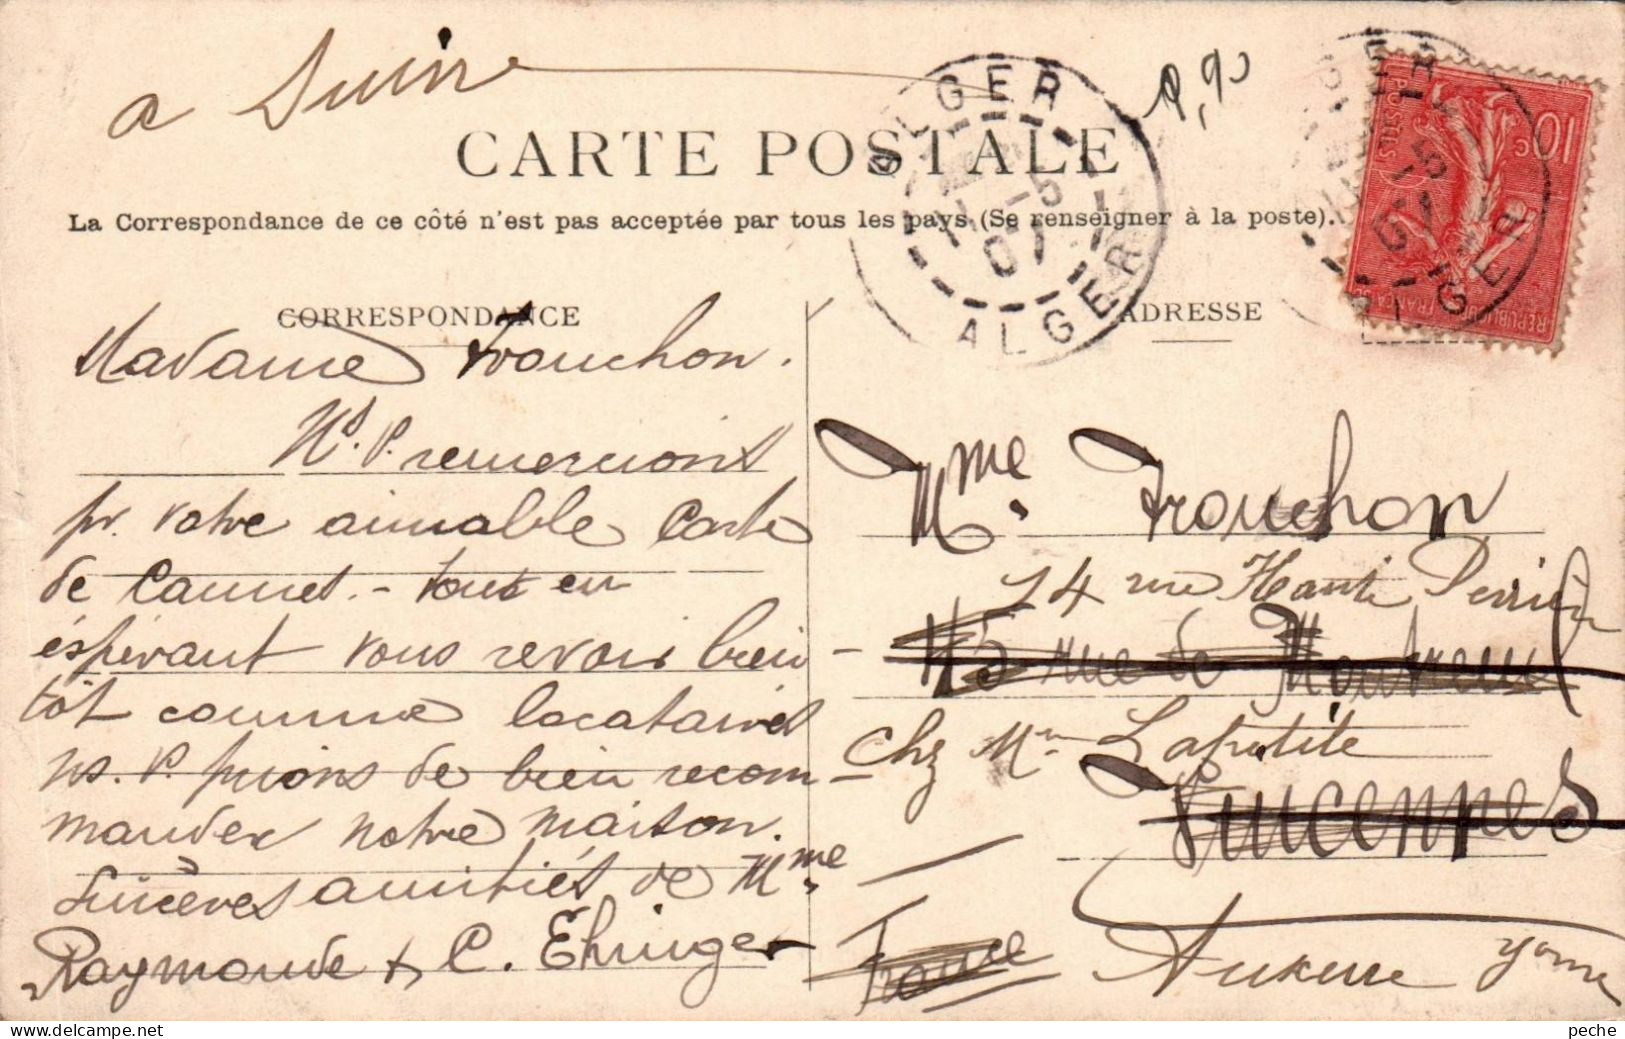 a Suivre
1,90
CARTE POSTALE
La Correspondance de ce côté n'est pas acceptée par tous les pays (Se renseigner à la poste).
ALGER
-5
07
ALGER
10c
POSTES
REPUBLIQUE FRANÇAISE
ALGER
-5
07
ALGER
CORRESPONDANCE
Madame Trouchon.
Ns. V. remercions
pr. votre aimable Carte
de Cannes. - tout en
éspérant vous revoir bien
tôt comme locataires
ns. V. prions de bien recom
mander notre maison.
Sincères amitiés de Mme
Raymonde & C. Ehinger
ADRESSE
Mme. Trouchon
14 rue Haute Perrière
45 rue de Montreuil
chz Mr Lapetite
Vincennes
France
Auxerre Yonne
peche